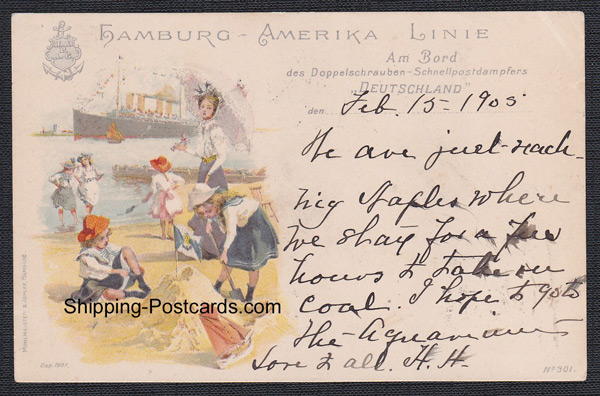 HAMBURG-AMERIKA LINIE
Am Bord
des Doppelschrauben-Schnellpostdampfers
"DEUTSCHLAND"
den Feb. 15-1905
We are just reach-
ing Naples where
we stay for a few
hours to take on
coal. I hope to go to
the Aquarium
Love to all. H.H.
Shipping-Postcards.com
MÜHLMEISTER & JOHLER, HAMBURG
Dep. 1901.
No 301.